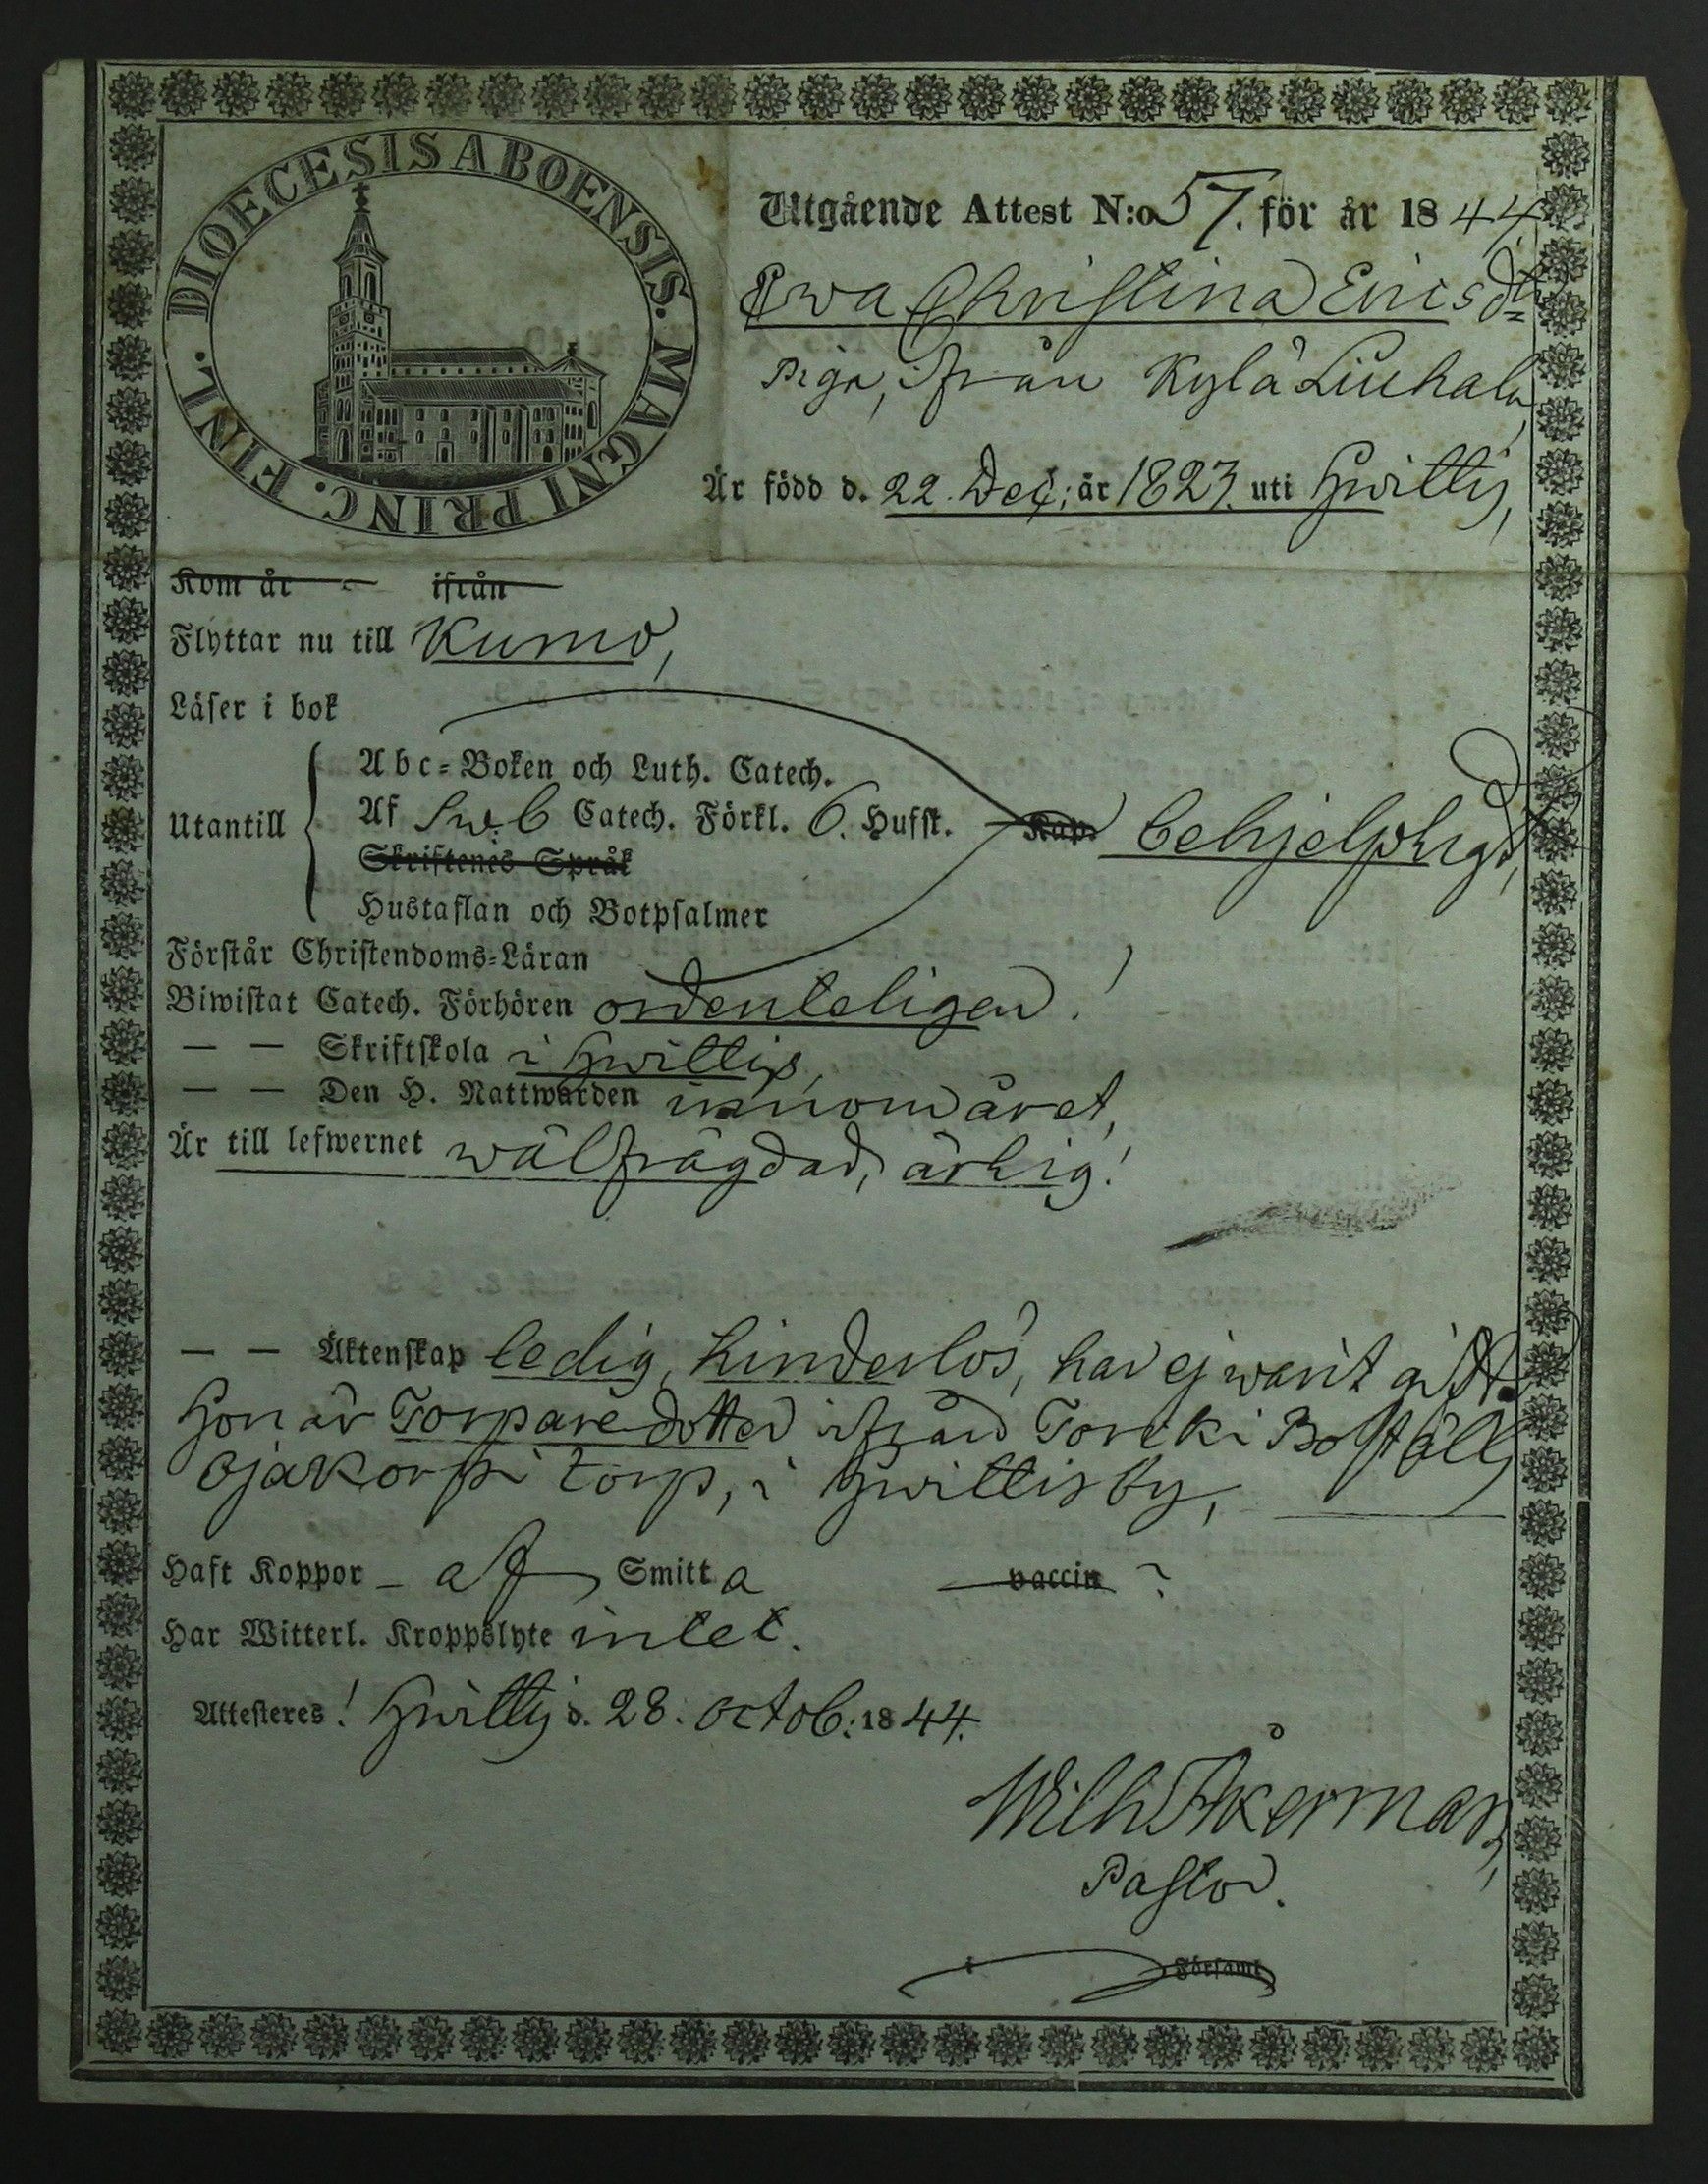 DIOECESIS ABOENSIS. MAGNI PRINC. FINL.
Utgående Attest N:o 57. för år 1844
Ewa Christina Ericsdtr
Piga, ifrån Kylä Liuhala,
Är född d. 22. Dec: år 1823. uti Hwittis,
Kom år ifrån
Flyttar nu till Kumo,
Läser i bok
Abc=Boken och Luth. Catech.
Utantill Af Sweb Catech. Förkl. 6. Hufst. Kap. behjelpligt,
Skriftenes Språk
Hustaflan och Botpsalmer
Förstår Christendoms=Läran
Biwistat Catech. Förhören ordenteligen!
— — Skriftskola i Hwittis,
— — Den H. Nattwarden innom året,
Är till lefwernet wälfrägdad, ärlig!
— — Äktenskap ledig, hinderlös, har ej warit gift.
Hon är Torpare dotter ifrån Boställ
Ojakorpi torp, i Hwittis by,
Haft Koppor – af Smitta vaccin ?
Har Witterl. Kroppslyte intet.
Attesteres! Hwittis d. 28. Octob: 1844.
Wilh Åkerman,
Pastor.
i Församl